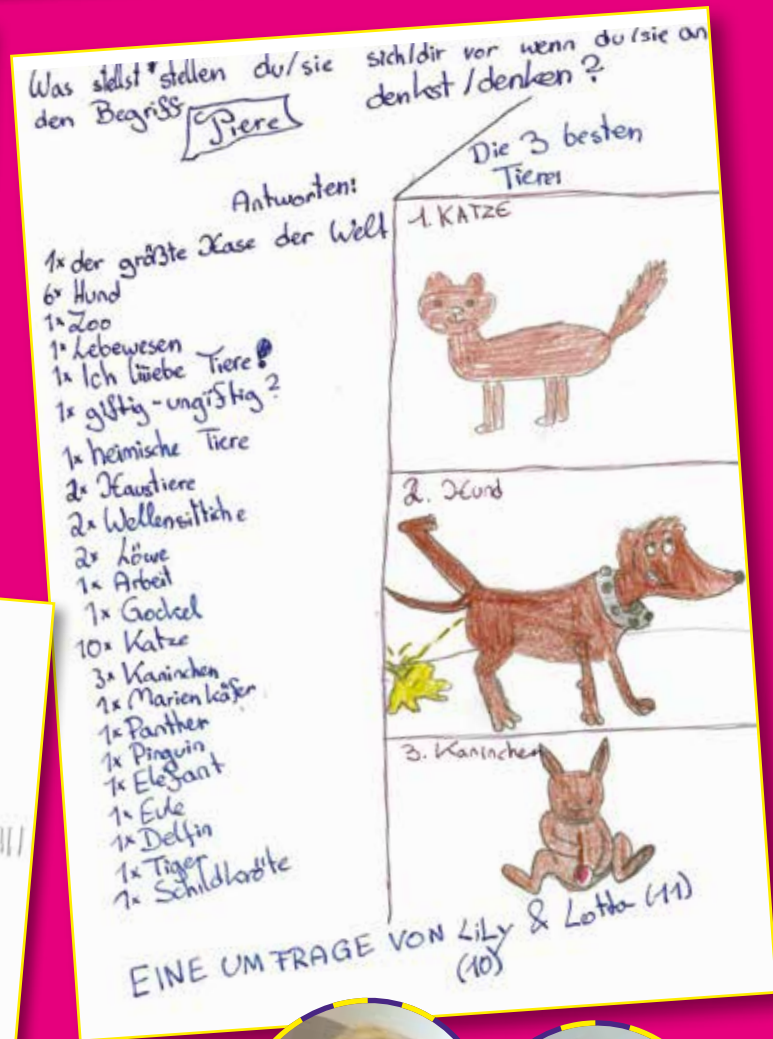 Was stellst stellen du/sie sich/dir vor wenn du/sie an
den Begriff Tiere denkst/denken?
Antworten:
1x der größte Hase der Welt
6x Hund
1x Zoo
1x Lebewesen
1x Ich liiiebe Tiere!
1x giftig-ungiftig?
1x heimische Tiere
2x Haustiere
2x Wellensittiche
2x Löwe
1x Arbeit
1x Gockel
10x Katze
3x Kaninchen
1x Marienkäfer
1x Panther
1x Pinguin
1x Elefant
1x Eule
1x Delfin
1x Tiger
1x Schildkröte
Die 3 besten
Tiere:
1. KATZE
2. Hund
3. Kaninchen
EINE UMFRAGE VON LiLy & Lotta (11)
(10)